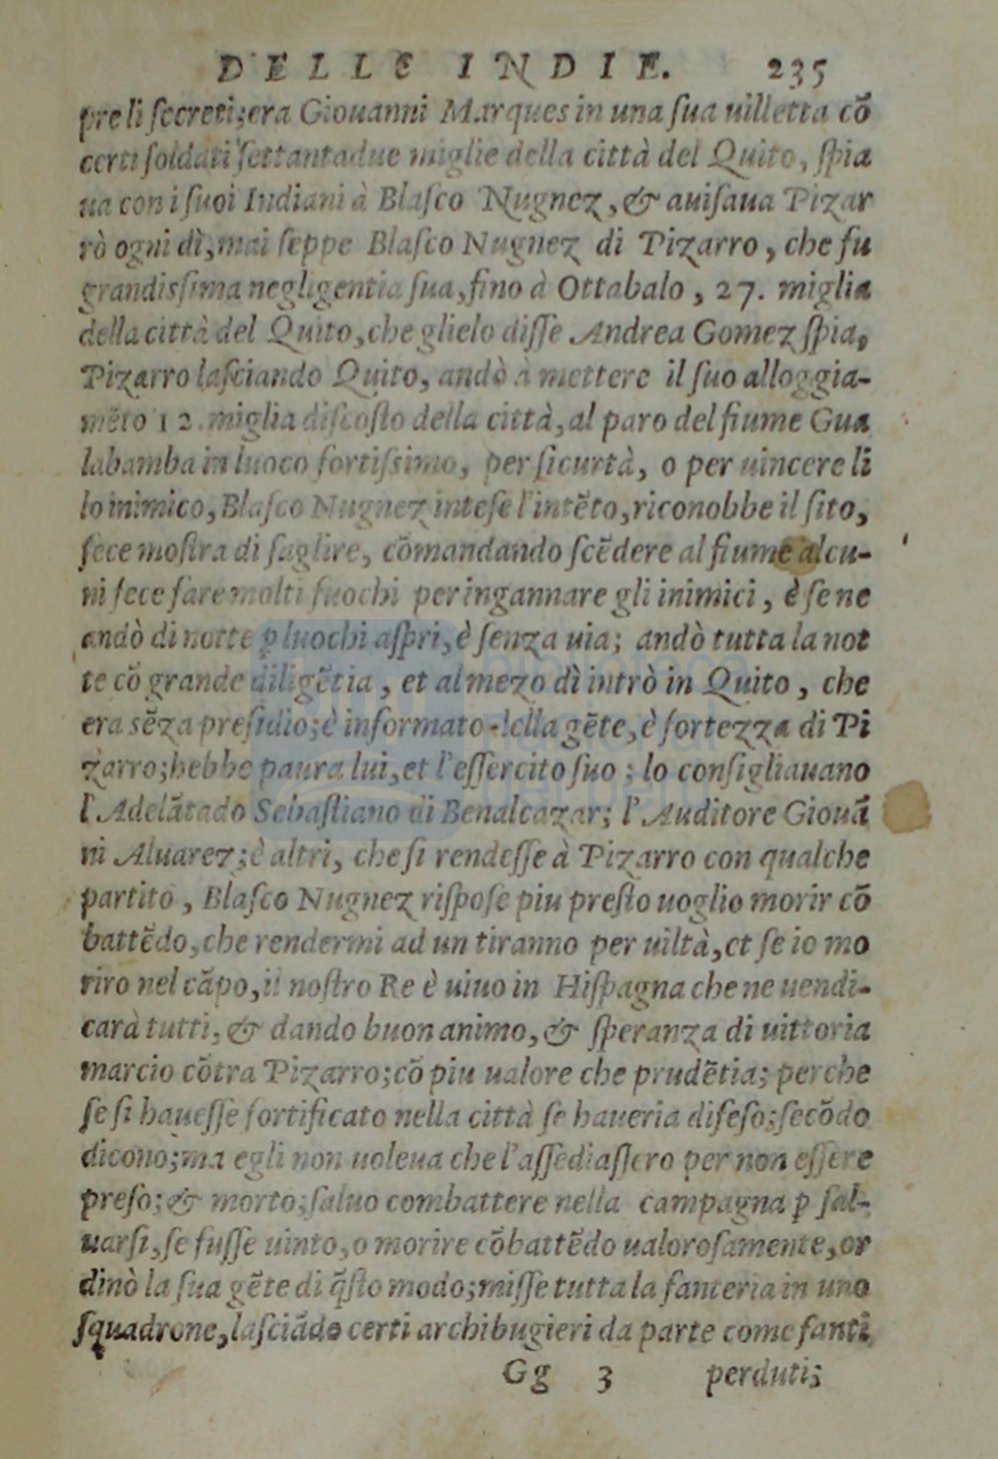 DELLE INDIE. 235
pre li ſecreti;era Giouanni Marques in una ſua uilletta cõ
certi ſoldati ſettantadue miglie della città del Quito, ſpia
ua con i ſuoi Indiani à Blaſco Nugnez,& auiſaua Pizar
rò ogni dì,mai ſeppe Blaſco Nugnez di Pizarro, che fu
grandisſima negligentia ſua,fino à Ottabalo, 27. miglia
della città del Quito,che glielo diſſe Andrea Gomez ſpia,
Pizarro laſciando Quito, andò à mettere il ſuo alloggia-
mẽto 12. miglia diſcoſto della città,al paro del fiume Gua
labamba in luoco fortiſsimo, per ſicurtà, o per uincere li
lo inimico,Blaſco Nugnez inteſe l'intẽto,riconobbe il ſito,
fece moſtra di ſaglire, cõmandando ſcẽdere al fiume alcu-
ni fece fare molti fuochi per ingannare gli inimici, è ſe ne
andò di notte ꝑ luochi aſpri,è ſenza uia; andò tutta la not
te cõ grande diligẽtia, et al mezo dì intrò in Quito, che
era sẽza preſidio;è informato della gẽte,è fortezza di Pi
zarro;hebbe paura lui,et l'eſſercito ſuo; lo conſigliauano
l'Adelãtado Sebaſtiano di Benalcazar; l'Auditore Giouã
ni Aluarez;è altri, che ſi rendeſſe à Pizarro con qualche
partito, Blaſco Nugnez riſpoſe piu preſto uoglio morir cõ
battẽdo,che rendermi ad un tiranno per uiltà,et ſe io mo
riro nel cãpo,il noſtro Re è uiuo in Hiſpagna che ne uendi-
carà tutti,& dando buon animo,& ſperanza di uittoria
marcio cõtra Pizarro;cõ piu ualore che prudẽtia; perche
ſe ſi haueſſe fortificato nella città ſe haueria difeſo;ſecõdo
dicono;ma egli non uoleua che l'aſſediaſſero per non eſſere
preſo;& morto;ſaluo combattere nella campagna ꝑ ſal-
uarſi,ſe fuſſe uinto,o morire cõbattẽdo ualoroſamente,or
dinò la ſua gẽte di q̃ſto modo;miſſe tutta la fanteria in uno
ſquadrone,laſciãdo certi archibugieri da parte come fanti
Gg 3 perduti;
biblioteca
nacional
del perú